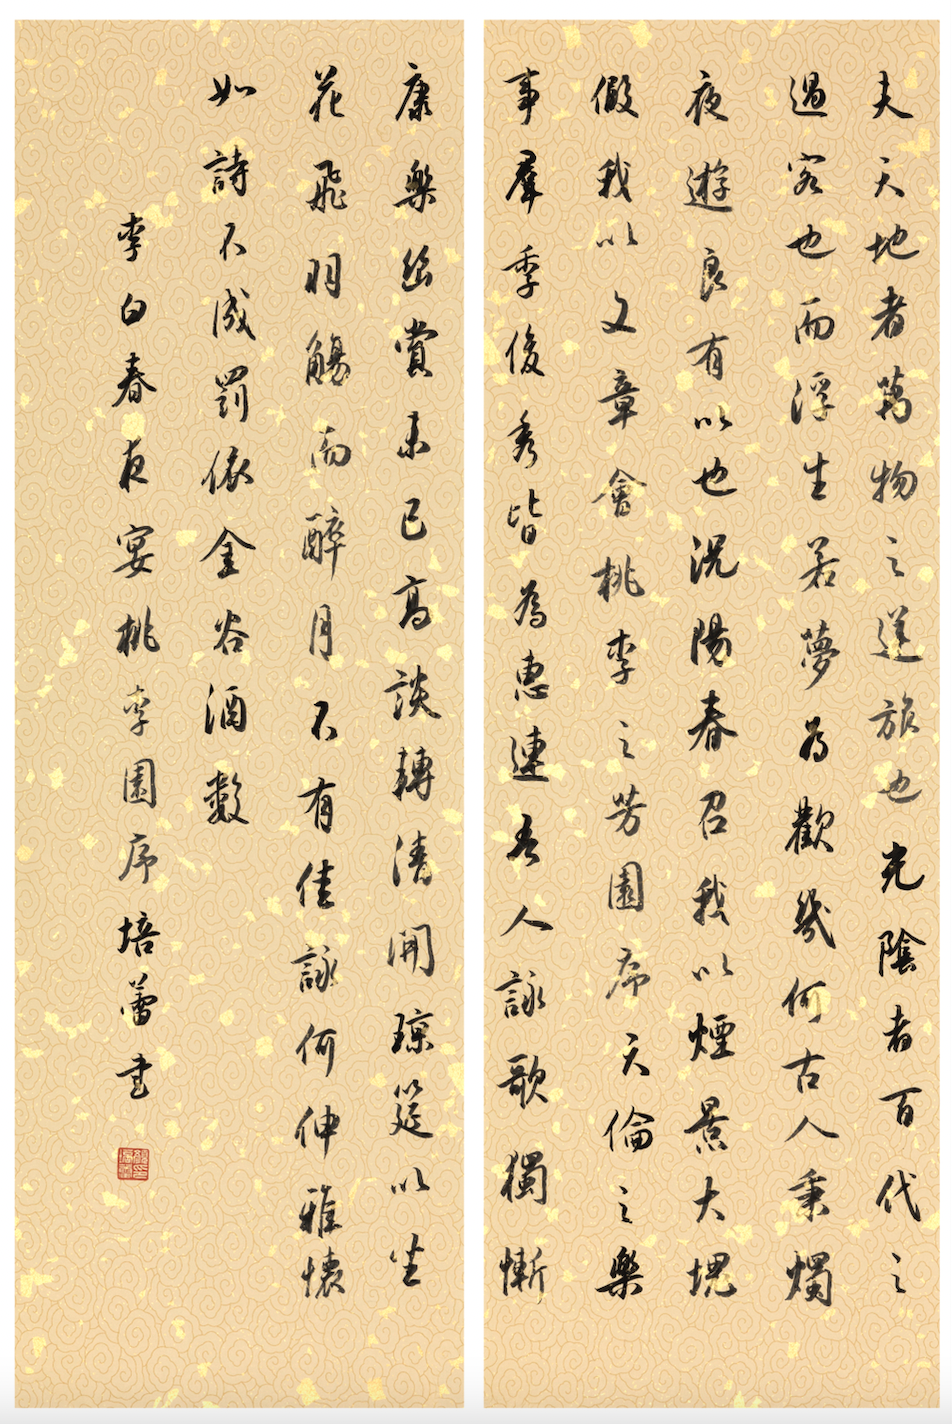 夫天地者萬物之逆旅也光陰者百代之
過客也而浮生若夢為歡幾何古人秉燭
夜遊良有以也況陽春召我以煙景大塊
假我以文章會桃李之芳園序天倫之樂
事羣季俊秀皆為惠連吾人詠歌獨慚
康樂幽賞未已高談轉清開瓊筵以坐
花飛羽觴而醉月不有佳詠何伸雅懷
如詩不成罰依金谷酒數
李白春夜宴桃李園序培蕾书